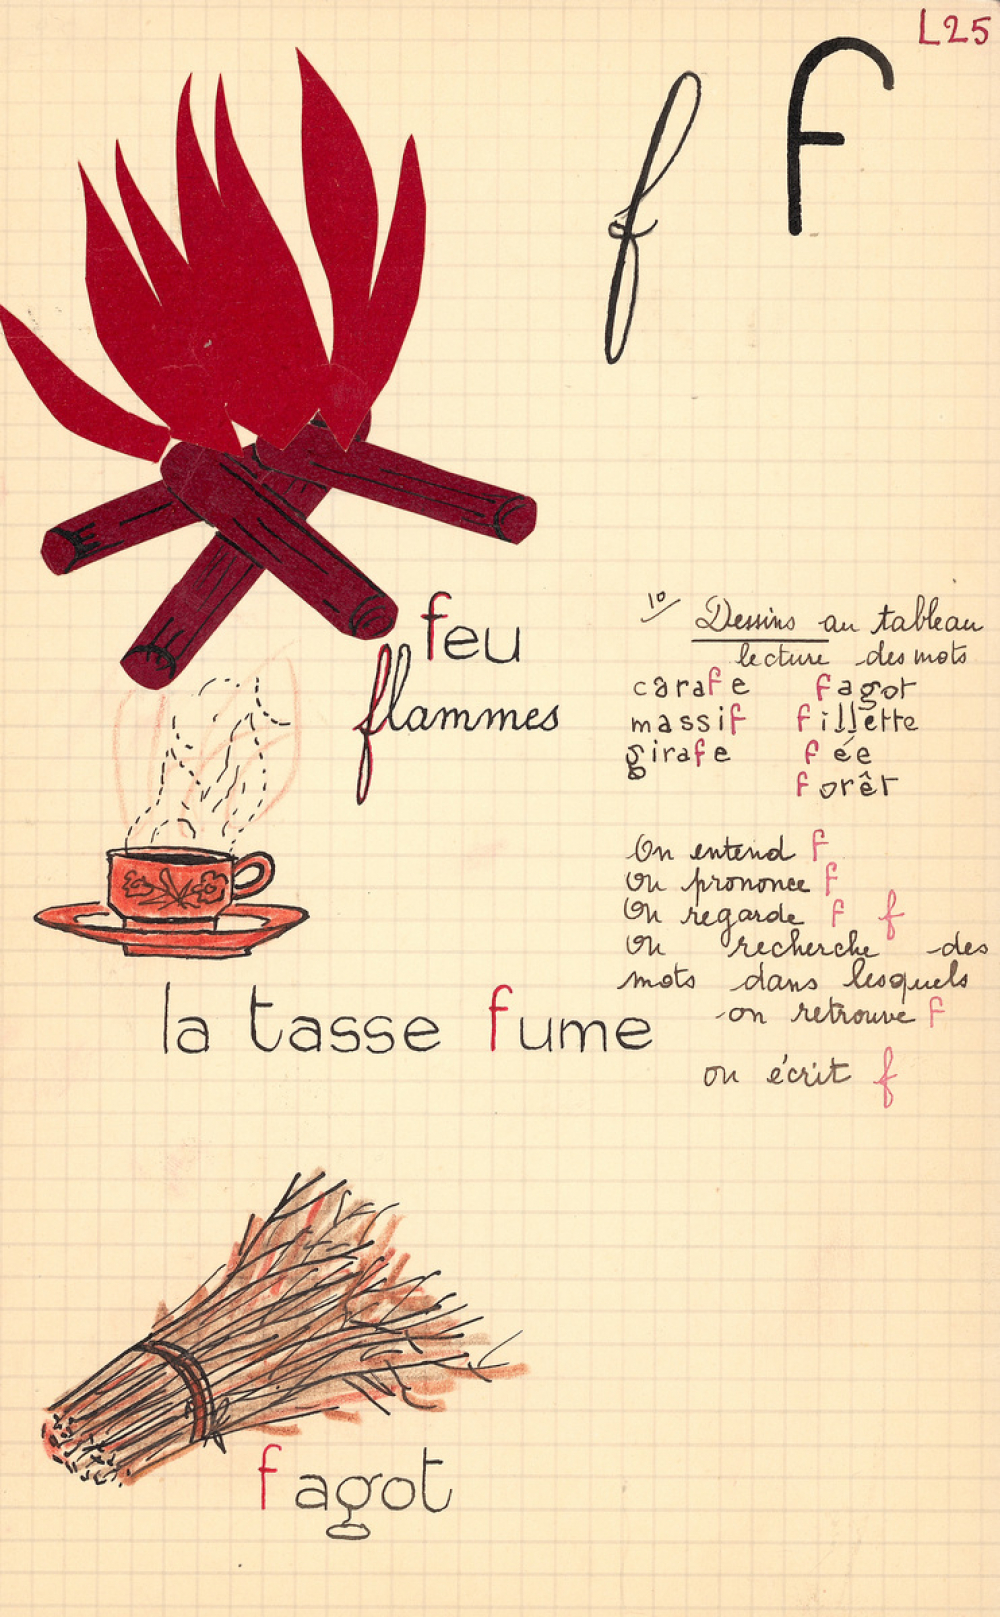 L25
f f
feu
flammes
1º/ Dessins au tableau
lecture des mots
carafe fagot
massif fillette
girafe fée
forêt
On entend f
On prononce f
On regarde f f
On recherche des
mots dans lesquels
on retrouve f
on écrit f
la tasse fume
fagot